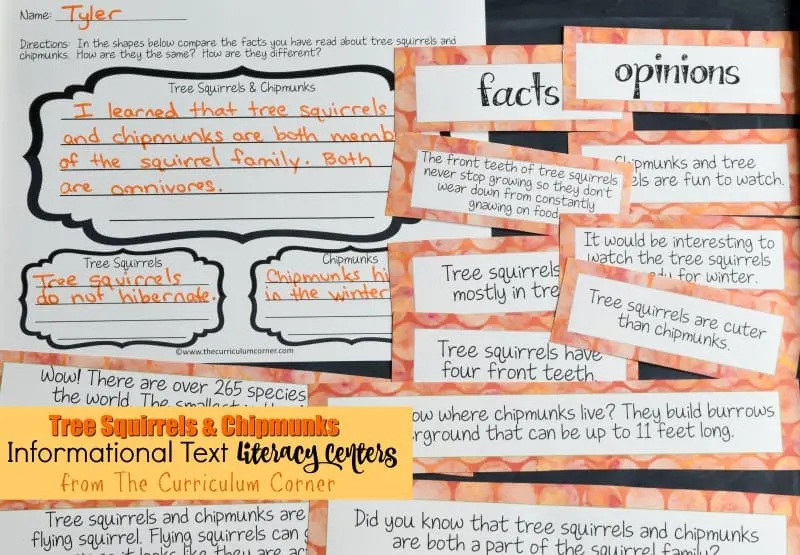 Name: Tyler
Directions: In the shapes below compare the facts you have read about tree squirrels and
chipmunks. How are they the same? How are they different?
Tree Squirrels & Chipmunks
I learned that tree squirrels
and chipmunks are both
of the squirrel family. Both
are omnivores.
Tree Squirrels
Tree squirrels
do not hibernate.
Chipmunks
Chipmunks
in the winter
©www.thecurriculumcorner.com
facts
opinions
The front teeth of tree squirrels
never stop growing so they don't
wear down from constantly
gnawing on food.
Chipmunks and tree
are fun to watch.
Tree squirrels
mostly in
It would be interesting to
watch the tree squirrels
for winter.
Tree squirrels are cuter
than chipmunks.
Tree squirrels have
four front teeth.
Wow! There are over 265 species
the world. The smallest
where chipmunks live? They build burrows
that can be up to 11 feet long.
Tree Squirrels & Chipmunks
Informational Text Literacy Centers
from The Curriculum Corner
Tree squirrels and chipmunks are
flying squirrel. Flying squirrels can
looks like they are
Did you know that tree squirrels and chipmunks
are both a part of the squirrel family?